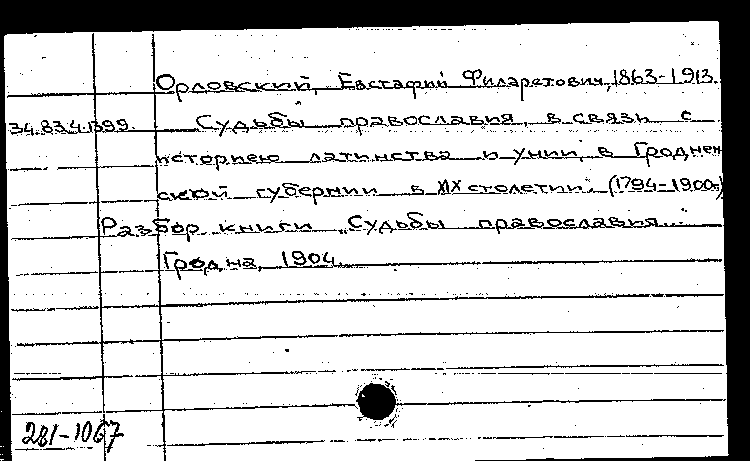 Орловский, Евстафий Филаретович, 1863-1913.
34.834.1399. Судьбы православия в связи с
историею латинства и унии в Гроднен
ской губернии в XIX столетии. (1794-1900г)
Разбор книги „Судьбы православия..."
Гродна, 1904.
281-1067